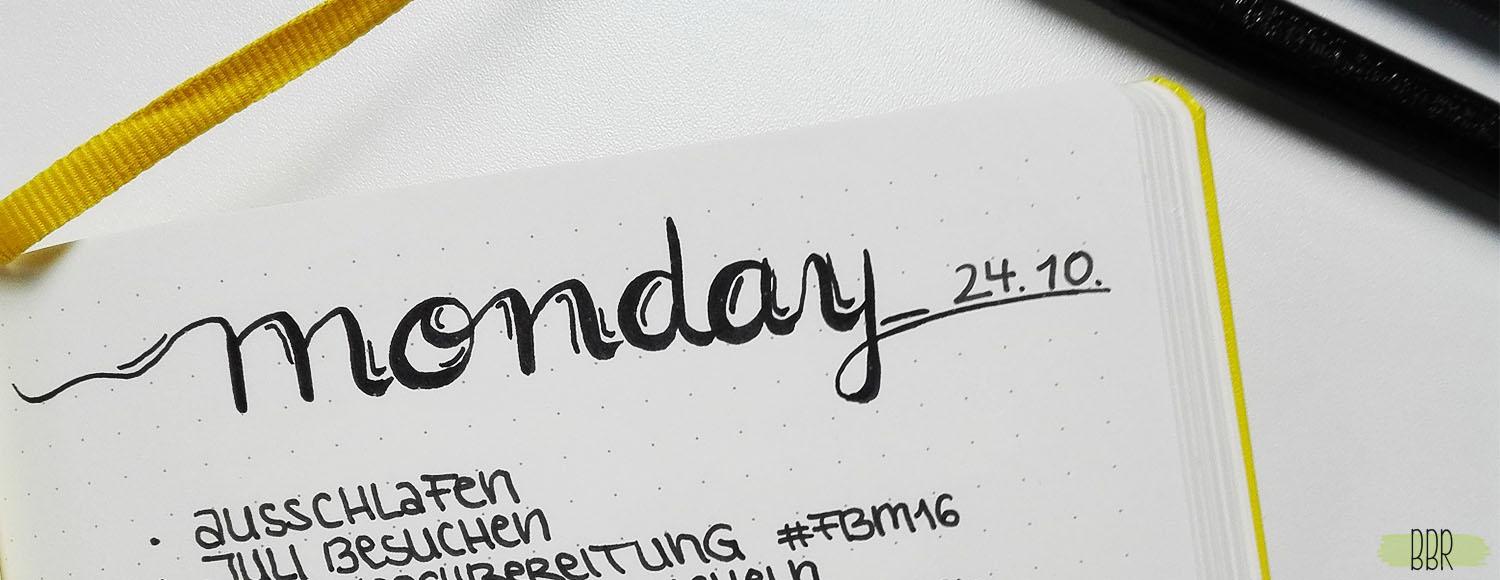 monday 24.10.
• AUSSCHLAFEN
JULI BESUCHEN
#FBM16
BBR